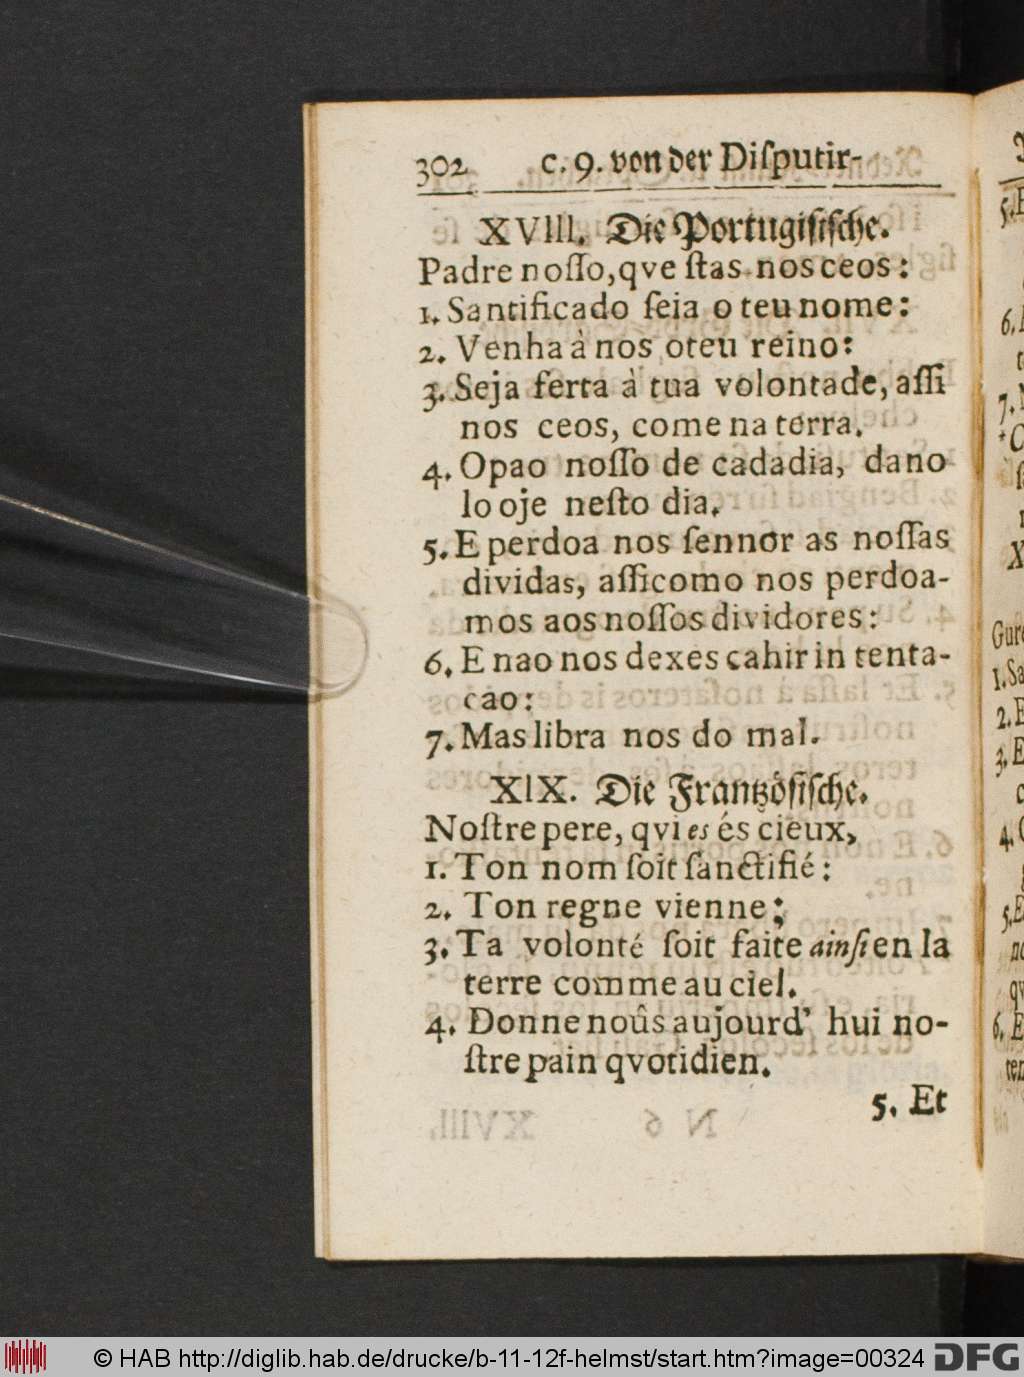 302 c. 9. von der Diſputir-
XVIII. Die Portugiſiſche.
Padre noſſo, qve ſtas nos ceos:
1. Santificado ſeia o teu nome:
2. Venha à nos oteu reino:
3. Seja ferta à tua volontade, aſſi
nos ceos, come na terra.
4. Opao noſſo de cadadia, dano
lo oje neſto dia.
5. E perdoa nos ſennor as noſſas
dividas, aſſicomo nos perdoa-
mos aos noſſos dividores:
6. E nao nos dexes cahir in tenta-
cao:
7. Mas libra nos do mal.
XIX. Die Frantzöſiſche.
Noſtre pere, qvi es és cieux,
1. Ton nom ſoit ſanctifié:
2. Ton regne vienne:
3. Ta volonté ſoit faite ainſi en la
terre comme au ciel.
4. Donne noûs aujourd' hui no-
ſtre pain qvotidien.
5. Et
© HAB http://diglib.hab.de/drucke/b-11-12f-helmst/start.htm?image=00324 DFG